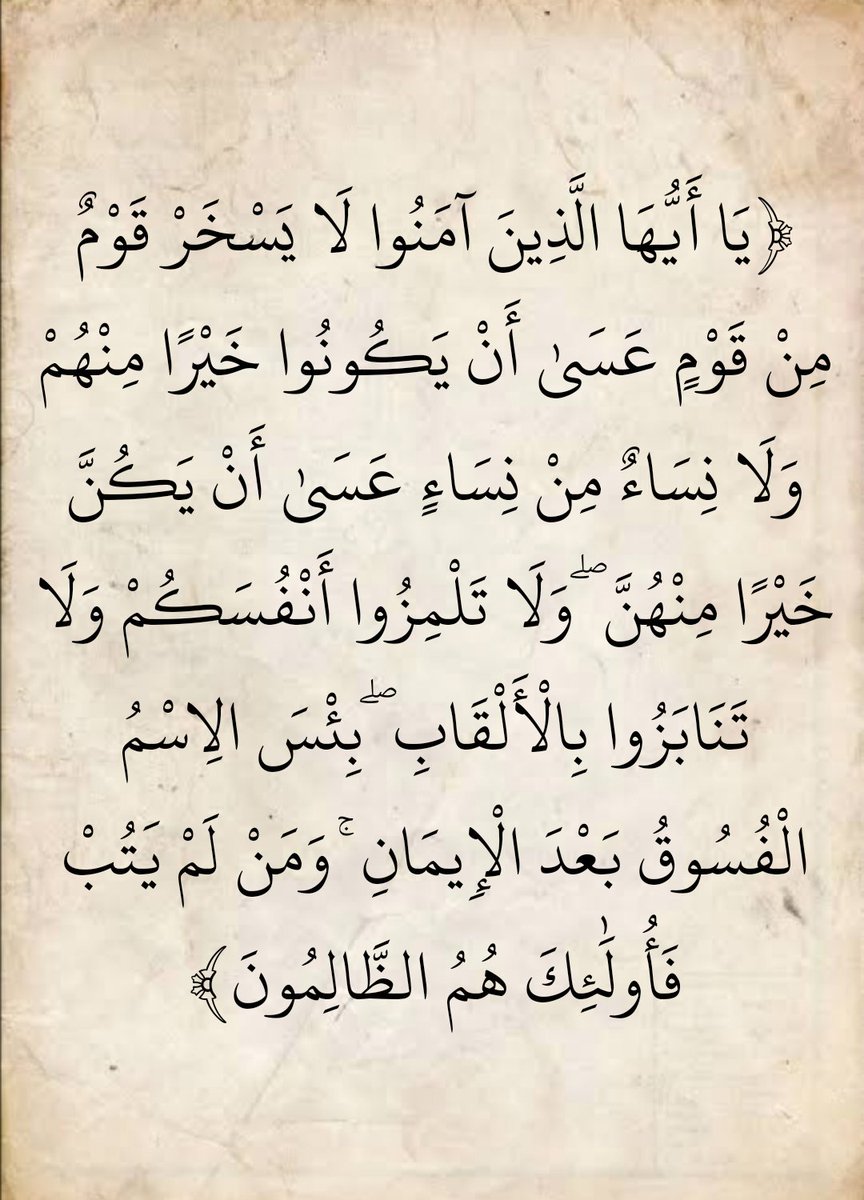 ﴿يَا أَيُّهَا الَّذِينَ آمَنُوا لَا يَسْخَرْ قَوْمٌ
مِنْ قَوْمٍ عَسَىٰ أَنْ يَكُونُوا خَيْرًا مِنْهُمْ
وَلَا نِسَاءٌ مِنْ نِسَاءٍ عَسَىٰ أَنْ يَكُنَّ
خَيْرًا مِنْهُنَّ ۖ وَلَا تَلْمِزُوا أَنْفُسَكُمْ وَلَا
تَنَابَزُوا بِالْأَلْقَابِ ۖ بِئْسَ الِاسْمُ
الْفُسُوقُ بَعْدَ الْإِيمَانِ ۚ وَمَنْ لَمْ يَتُبْ
فَأُولَٰئِكَ هُمُ الظَّالِمُونَ﴾